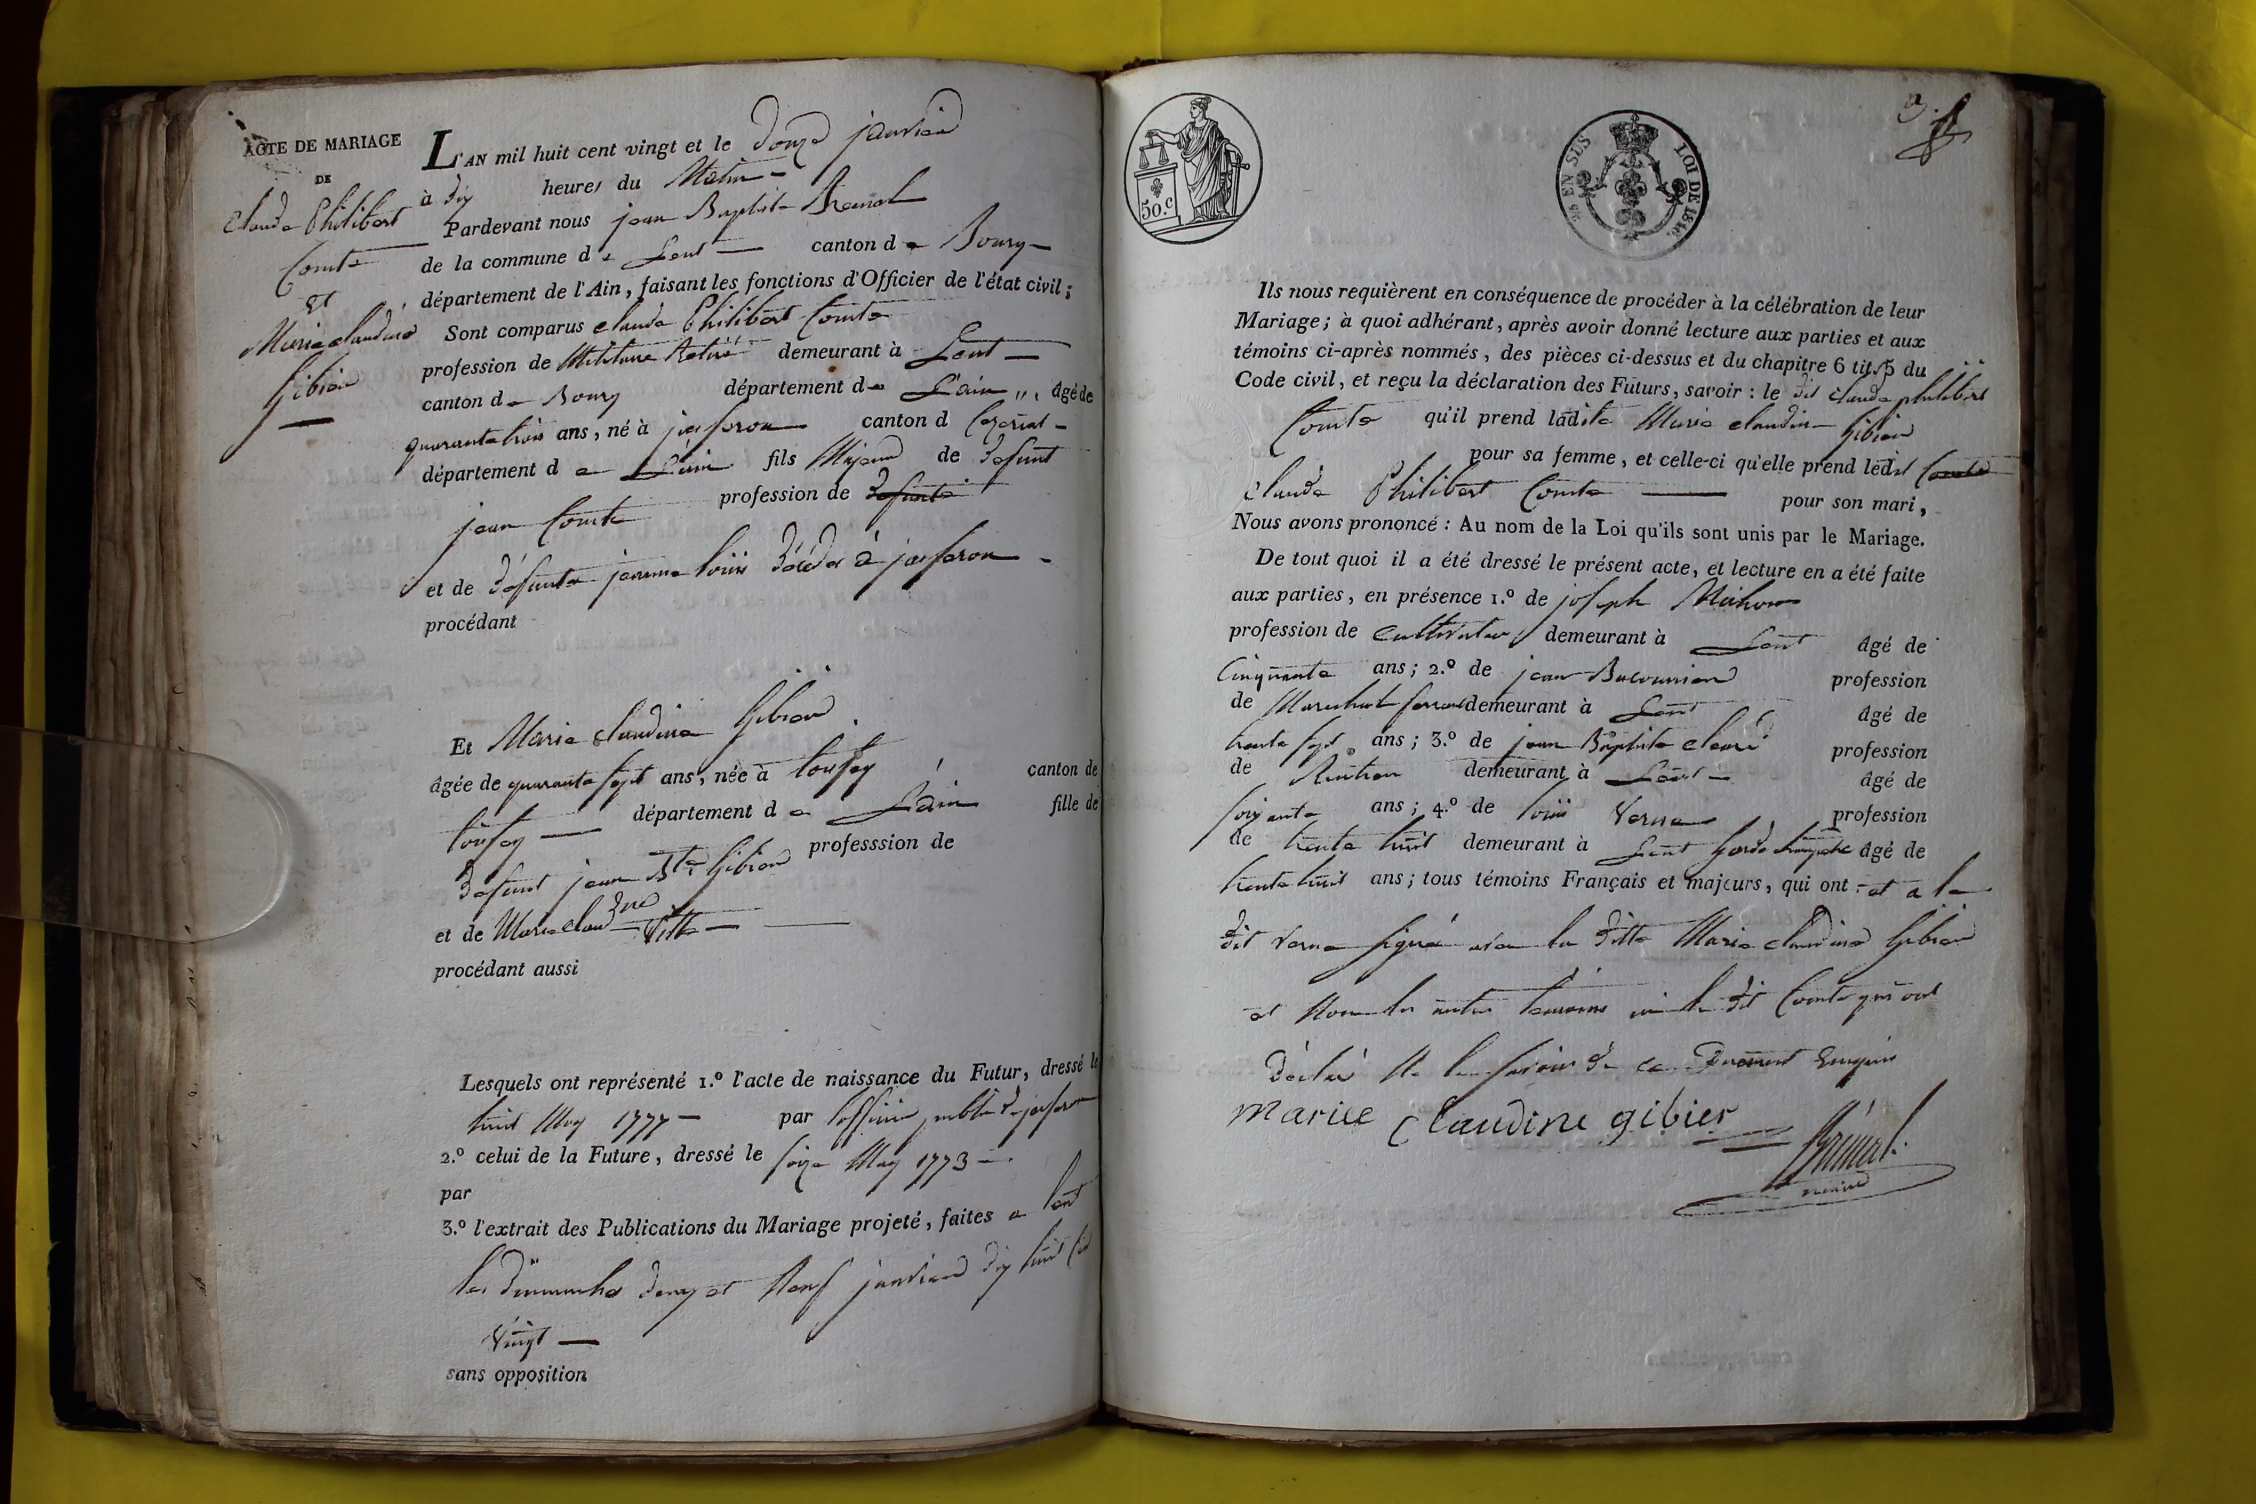 ACTE DE MARIAGE
DE
Claude Philibert
Comte
et
Marie claudine
Gibier
L'AN mil huit cent vingt et le Douze janvier
à dix heures du Matin
Pardevant nous jean Baptiste
de la commune de Lent canton de Bourg
département de l'Ain, faisant les fonctions d'Officier de l'état civil;
Sont comparus claude Philibert Comte
profession de Militaire Retiré demeurant à Lent
canton de Bourg département de L'ain, âgé de
quarante trois ans, né à jasseron canton d Ceyzeriat
département de L'ain fils Majeur de defunt
jean Comte profession de defunte
et de défunte jeanne décédée à jasseron
procédant
Et Marie claudine Gibier
âgée de quarante sept ans, née à toussey canton de
toussey département de L'ain fille de
defunt jean Bte Gibier professsion de
et de Marie claudne
procédant aussi
Lesquels ont représenté 1.º l'acte de naissance du Futur, dressé le
huit May 1777 par l'officier public de jasseron
2.º celui de la Future, dressé le seize May 1773
par
3.º l'extrait des Publications du Mariage projeté, faites a Lent
les dimanches deux et Neuf janvier dix huit cent
Vingt
sans opposition
50.c
EN SUS LOI DE 1816.
3.
Ils nous requièrent en conséquence de procéder à la célébration de leur
Mariage; à quoi adhérant, après avoir donné lecture aux parties et aux
témoins ci-après nommés, des pièces ci-dessus et du chapitre 6 tit. 5 du
Code civil, et reçu la déclaration des Futurs, savoir: le dit claude philibert
Comte qu'il prend ladite Marie claudine Gibier
pour sa femme, et celle-ci qu'elle prend ledit Comte
Claude Philibert Comte pour son mari,
Nous avons prononcé: Au nom de la Loi qu'ils sont unis par le Mariage.
De tout quoi il a été dressé le présent acte, et lecture en a été faite
aux parties, en présence 1.º de joseph
profession de cultivateur demeurant à Lent âgé de
Cinquante ans; 2.º de jean profession
de Marechal ferrant demeurant à Lent âgé de
trente sept ans; 3.º de jean Baptiste profession
de Rentier demeurant à Lent âgé de
soixante ans; 4.º de louis Verne profession
de trente huit demeurant à Lent Garde champetre âgé de
trente huit ans; tous témoins Français et majeurs, qui ont et a le
dit Verne signé avec la ditte Marie claudine Gibier
et Non les autres temoins ni le dit Comte qui ont
déclaré Ne le savoir de ce Duement Enquis
marie claudine gibier